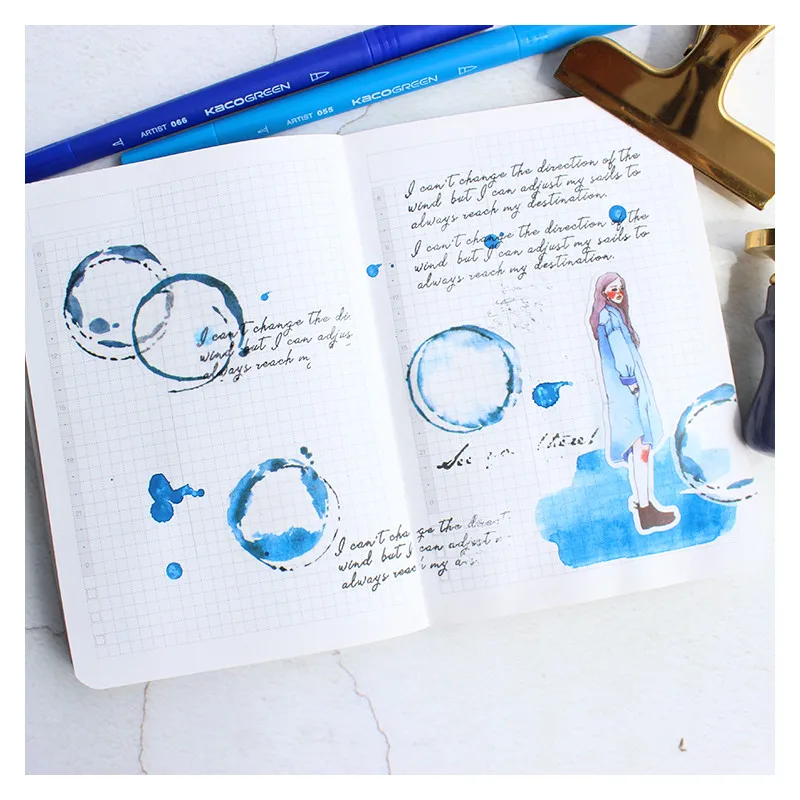 ARTIST 066 KACOGREEN
ARTIST 055 KACOGREEN
I can't change the di
wind but I can adjus
always reach m
I can't change the direction of the
wind but I can adjust my sails to
always reach my destination.
I can't change the direction of the
wind but I can adjust my sails to
always reach my destination.
See there!
I can't change the direct
wind but I can adjust
always reach my